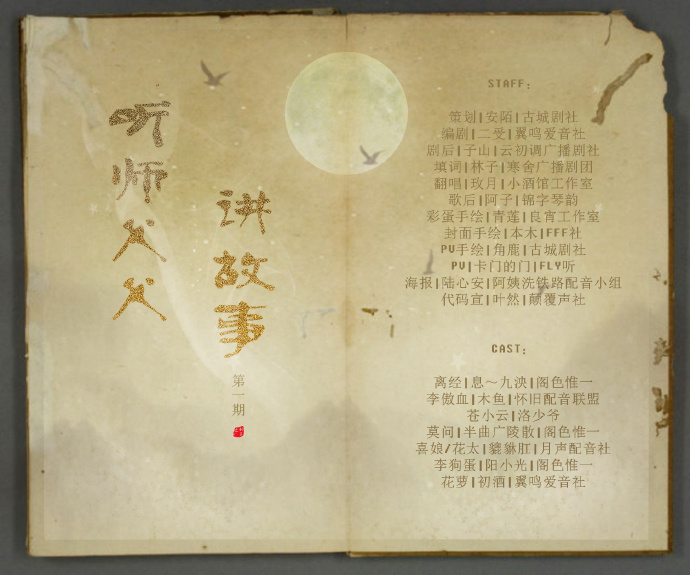 听师父父
讲故事
第一期
STAFF:
策划|安陌|古城剧社
编剧|二受|翼鸣爱音社
剧后|子山|云初调广播剧社
填词|林子|寒舍广播剧团
翻唱|玫月|小酒馆工作室
歌后|阿子|锦字琴韵
彩蛋手绘|青莲|良宵工作室
封面手绘|本木|FFF社
PV手绘|角鹿|古城剧社
PV|卡门的门|FLY听
海报|陆心安|阿姨洗铁路配音小组
代码宣|叶然|颠覆声社
CAST:
离经|息～九泱|阁色惟一
李傲血|木鱼|怀旧配音联盟
苍小云|洛少爷
莫问|半曲广陵散|阁色惟一
喜娘/花太|貔貅肛|月声配音社
李狗蛋|阳小光|阁色惟一
花萝|初酒|翼鸣爱音社